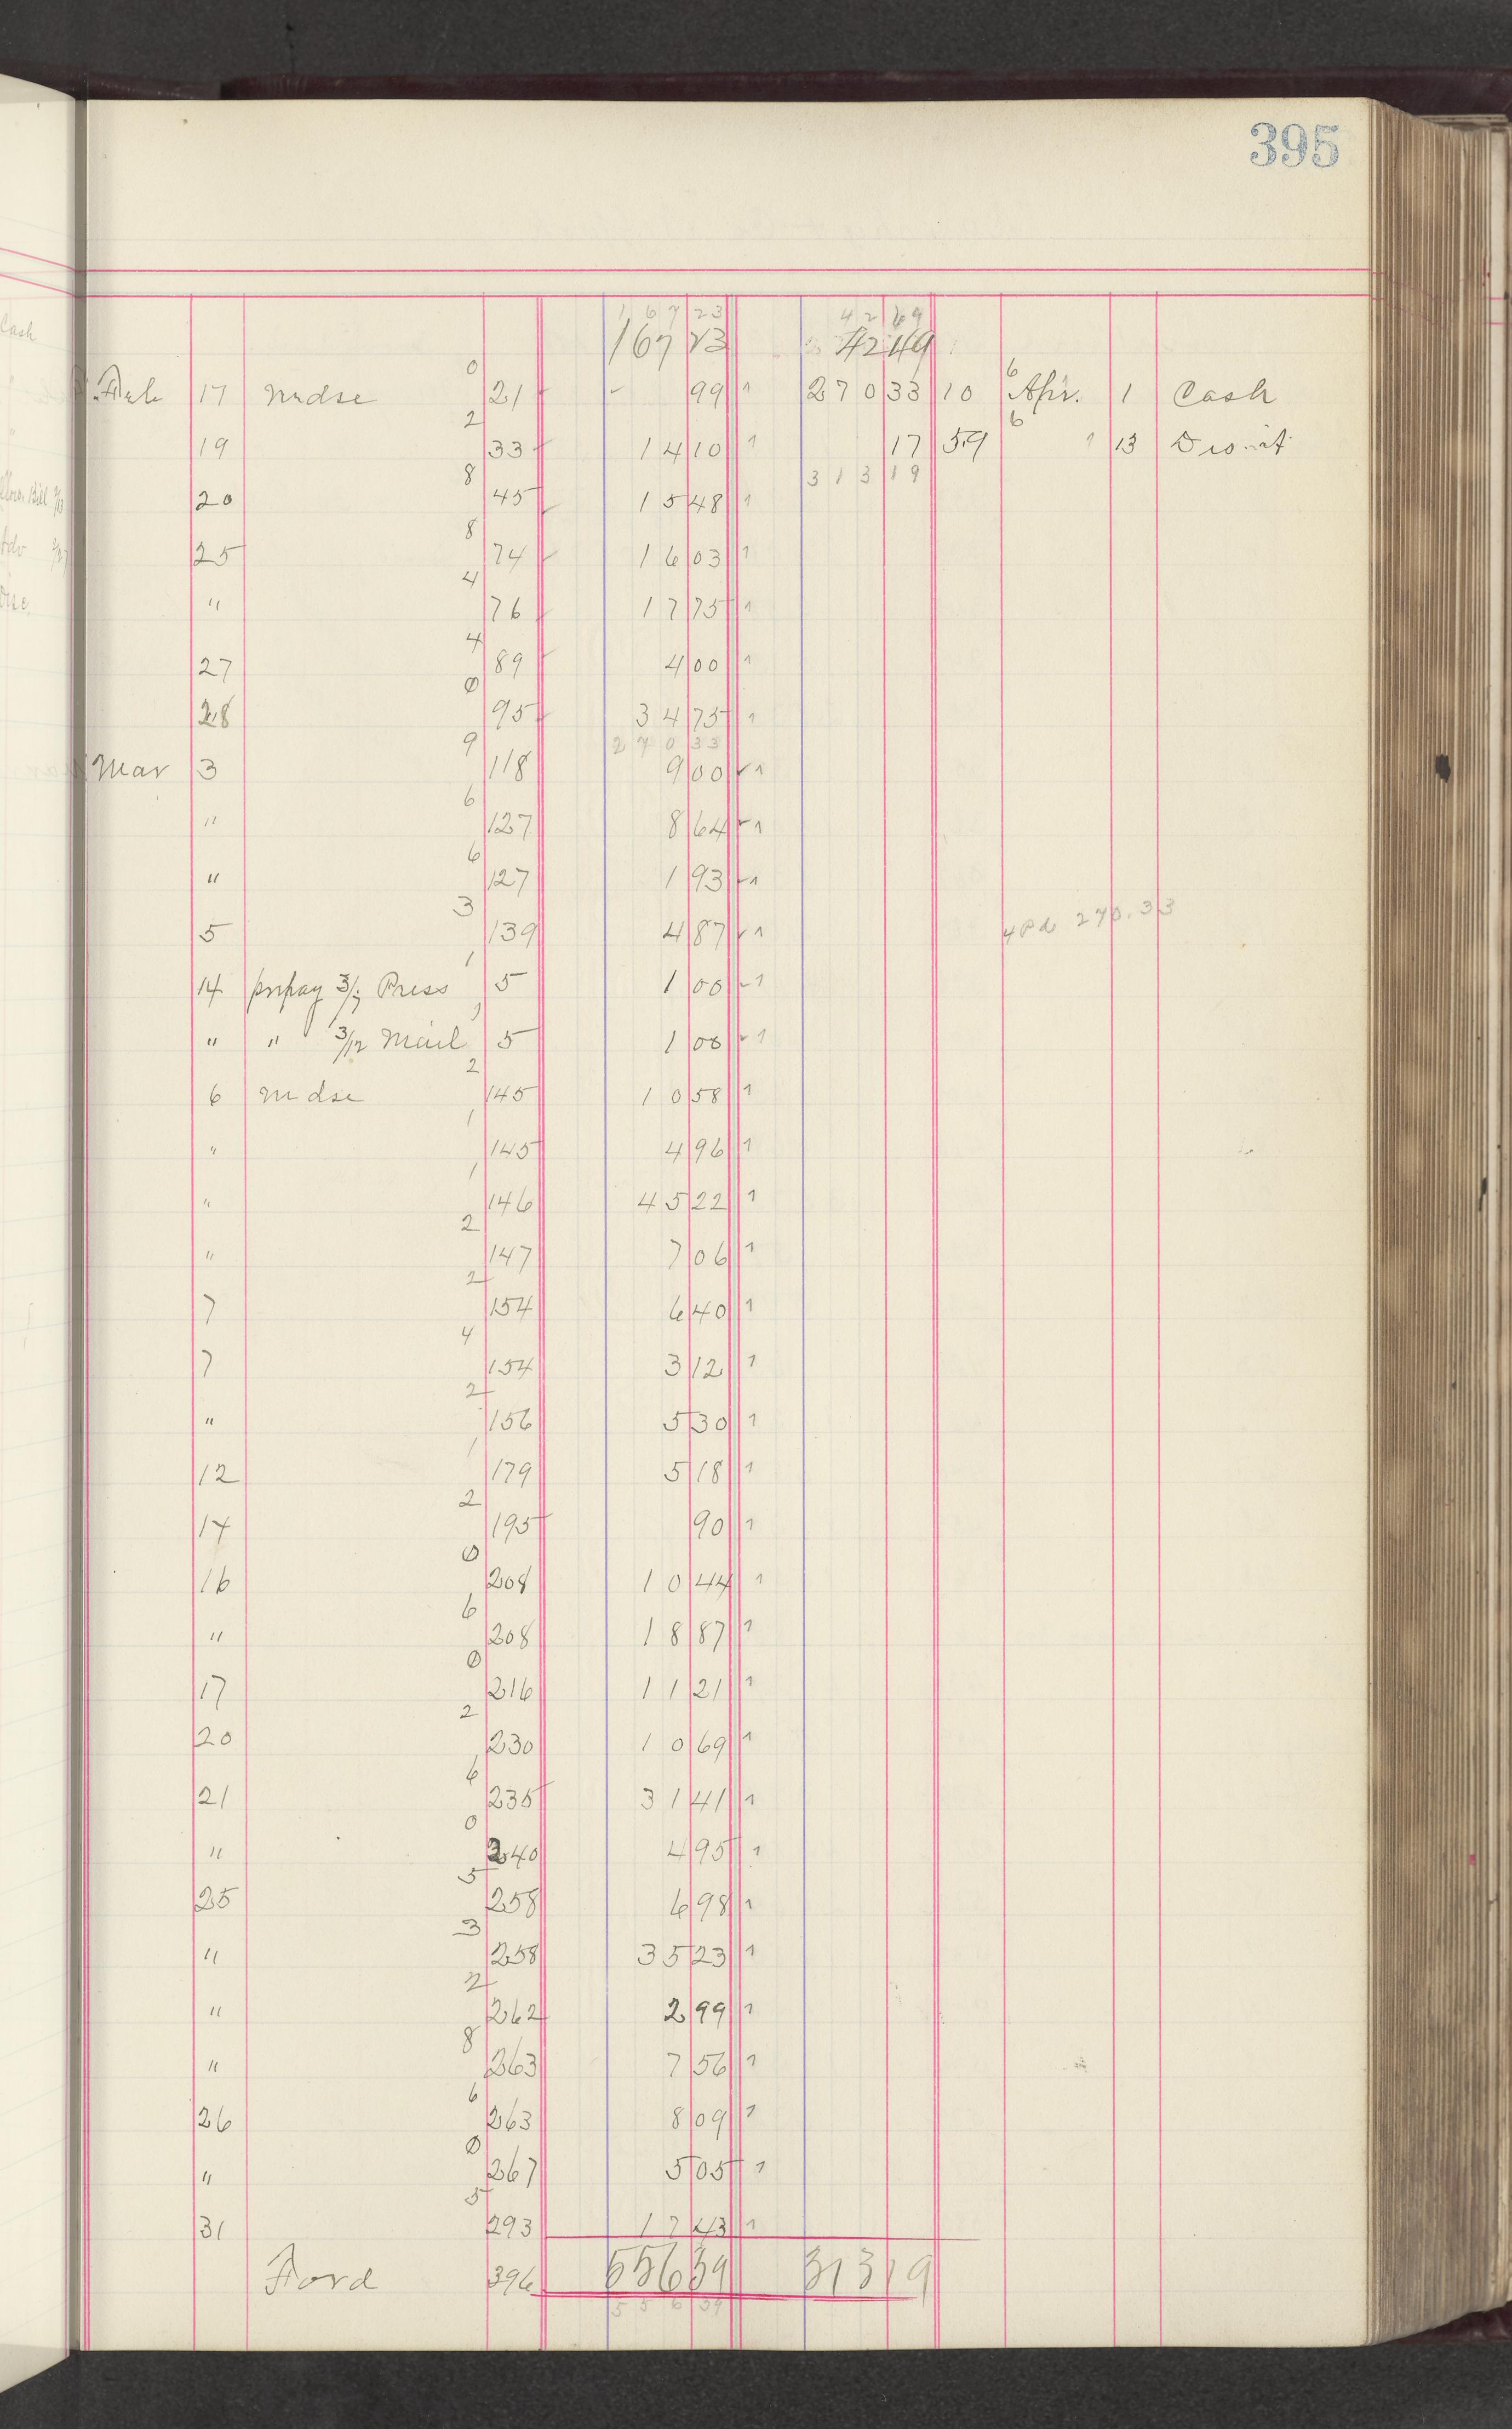 395
1 6 7 23 4 2 69
167 23
Feb 17 mdse 0 21 99 270 33 10 6 Apr. 1 Cash
19 2 33 14 10 17 59 6 13
3 1 3 1 9
20 8 45 15 48
25 8 74 16 03
" 4 76 17 75
27 4 89 4 00
28 0 95 34 75
2 7 0 33
Mar 3 9 118 9 00
" 6 127 8 64
" 6 127 1 93
5 3 139 4 87 270.33
14 prepay 3/7 Press 1 5 1 00
" " 3/12 Mail 1 5 1 00
6 mdse 2 145 10 58
" 1 145 4 96
" 1 146 45 22
" 2 147 7 06
7 2 154 6 40
7 4 154 3 12
" 2 156 5 30
12 1 179 5 18
14 2 195 90
16 0 208 10 44
" 6 208 18 87
17 0 216 11 21
20 2 230 10 69
21 6 235 31 41
" 0 240 4 95
25 5 258 6 98
" 3 258 35 23
" 2 262 2 99
" 8 263 7 56
26 6 263 8 09
" 0 267 5 05
31 5 293 17 43
Ford 396 556 39 313 19
5 5 6 39